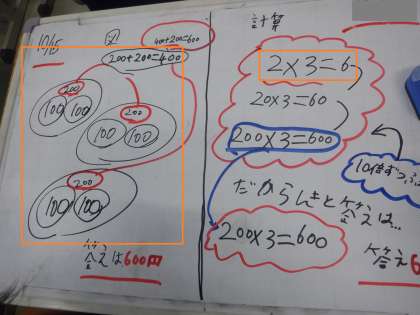 10/15
図
400+200=600
200+200=400
200
100 100
200
100 100
200
100 100
答えは600円
計算
2×3=6
20×3=60
200×3=600
10倍ずつ
だから
答えは…
200×3=600
答え6